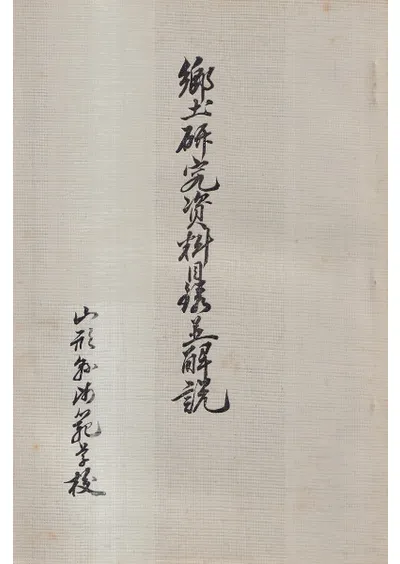 郷土研究資料目録並解説
山形縣師範学校